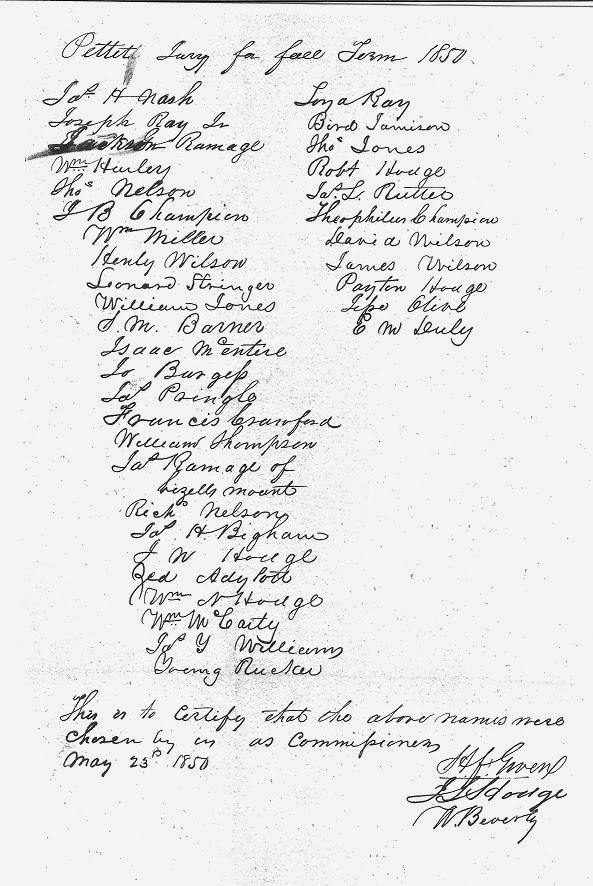 Pettet Jury for fall Term 1850.
Jas. H Nash
Joseph Ray Jr
Jackson Ramage
Wm Hurley
Thos Nelson
J B Champion
Wm Miller
Henly Wilson
Leonard Stringer
William Jones
J. M. Barner
Isaac McEntire
Jo Burgess
Jas Pringle
Francis Crawford
William Thompson
Jas Ramage of
mount
Richd Nelson
Jas H Bigham
J W Hodge
Zed
Wm N Hodge
Wm McCarty
Jas Y Williams
Young Rucker
Ray
Bird Jamison
Thos Jones
Robt Hodge
Jas. L. Rutter
Theophilus Champion
David Wilson
James Wilson
Payton Hodge
Clive
E M Duly
This is to Certify that the above names were
Chosen by us as Commissioners
May 23d 1850
H. F. Given
J S Hodge
W. Beverly